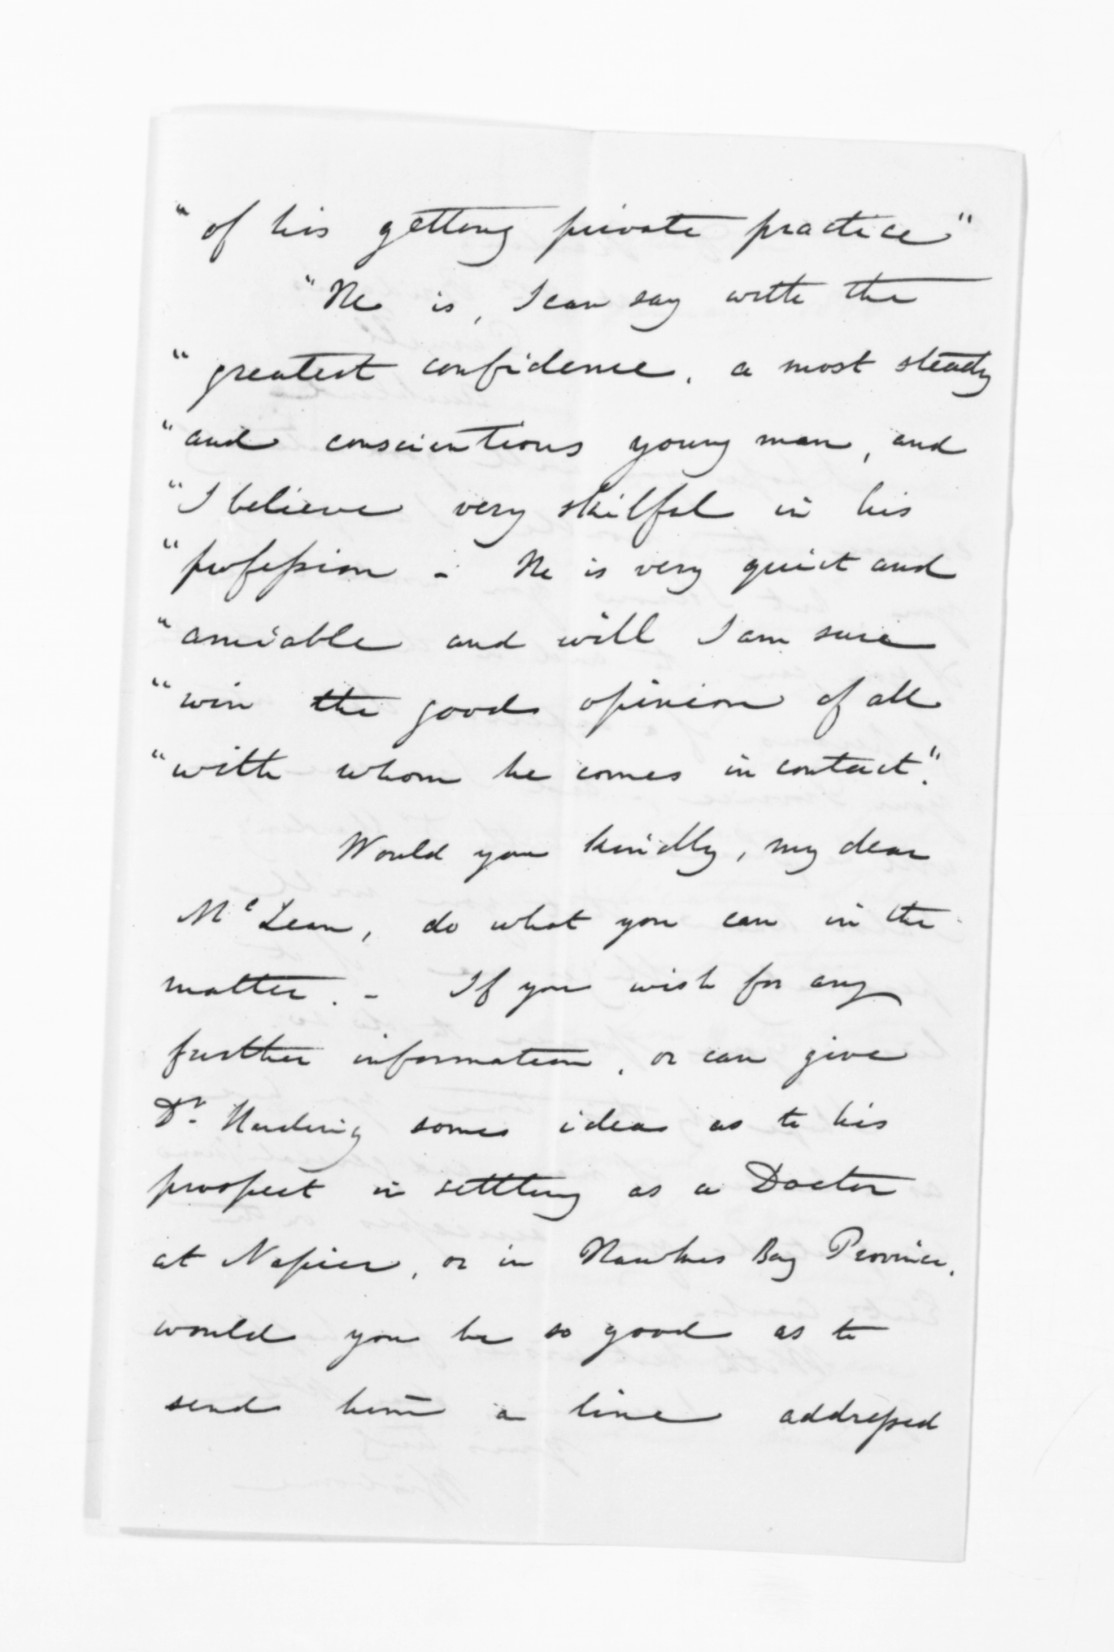 "of his getting private practice"
"He is, I can say with the
"greatest confidence, a most steady
"and conscientious young man, and
"I believe very skilful in his
"profession - He is very quiet and
"amiable and will I am sure
"win the good opinion of all
"with whom he comes in contact".
Would you kindly, my dear
McLean, do what you can in the
matter. - If you wish for any
further information, or can give
Dr. Harding some ideas as to his
prospect in settling as a Doctor
at Napier, or in Hawkes Bay Province,
would you be so good as to
send him a line addressed